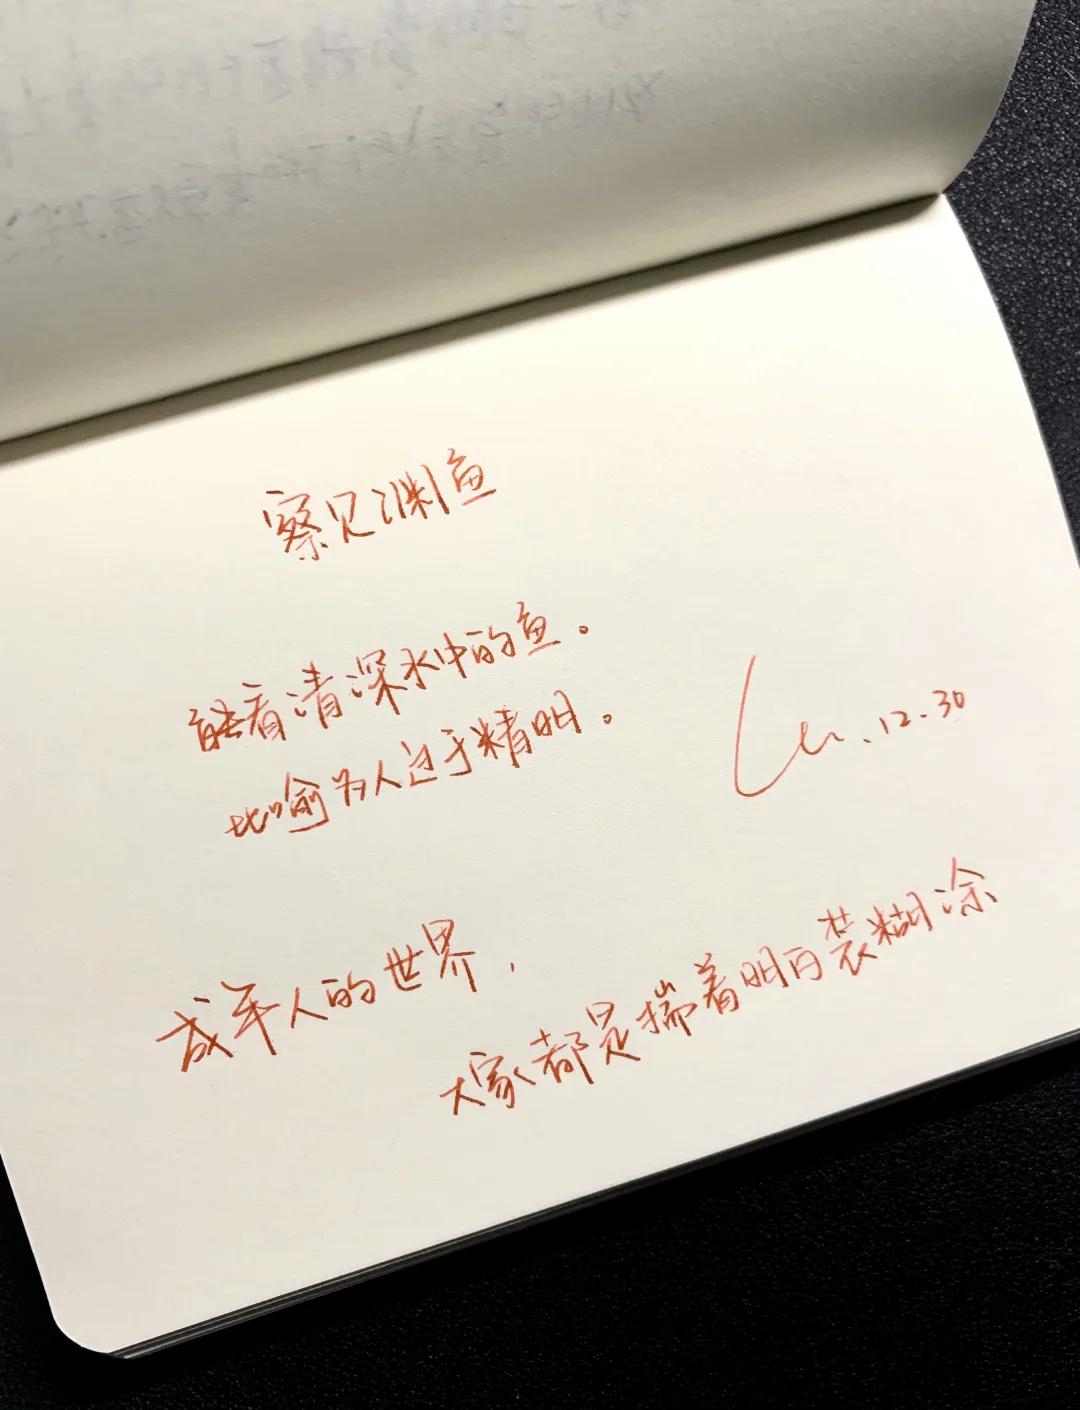 察见渊鱼
能看清深水中的鱼。
比喻为人过于精明。
12.30
成年人的世界,
大家都是揣着明白装糊涂